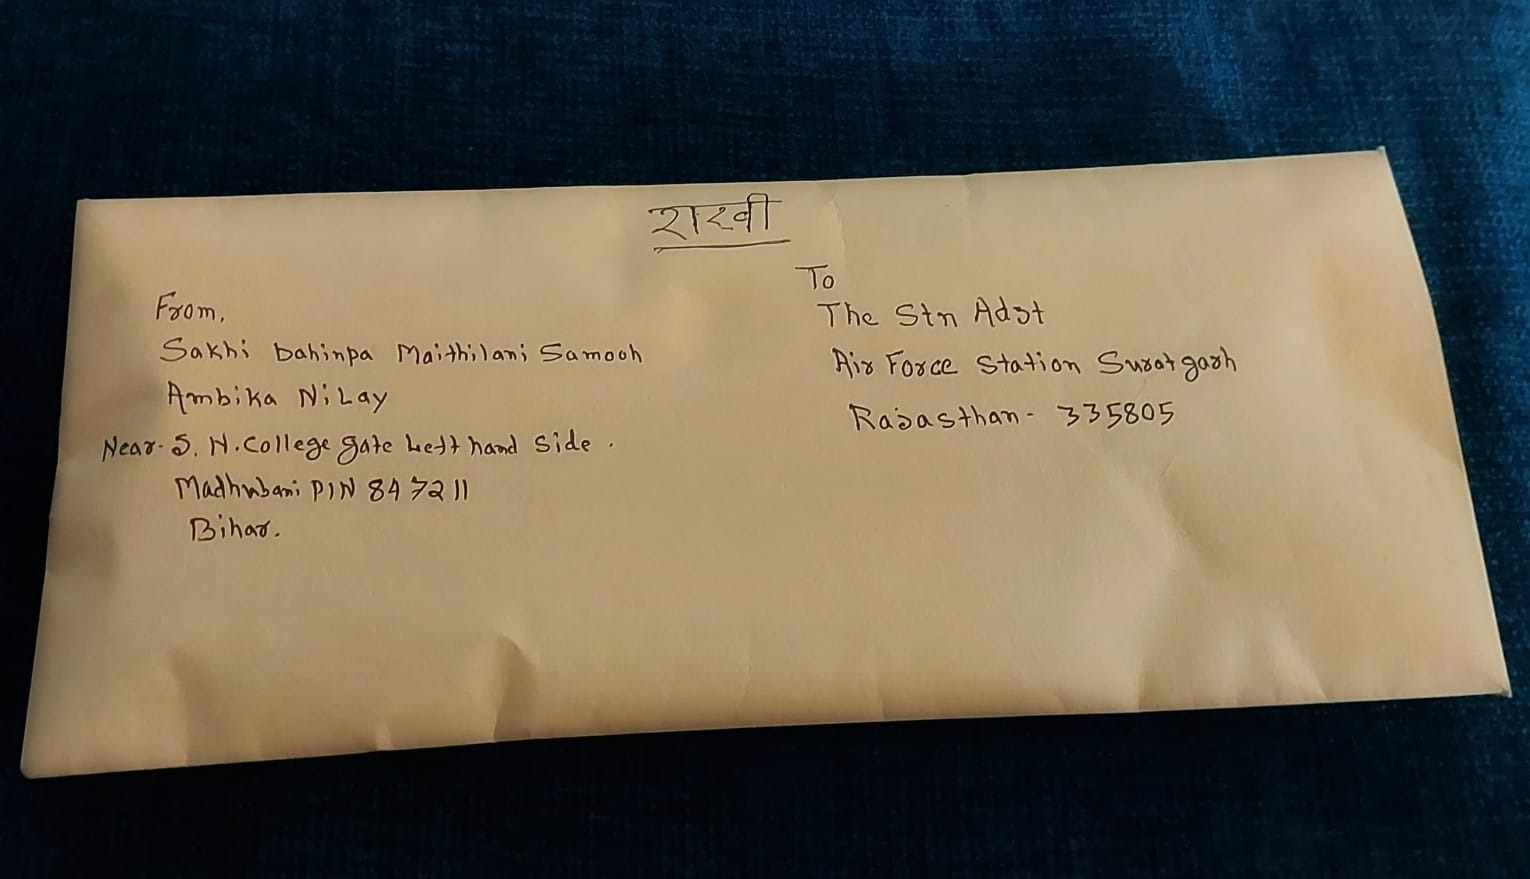 राखी
From,
Sakhi bahinpa Maithilani Samooh
Ambika NiLay
Near- S. N. College gate Left hand Side .
Madhubani PIN 847211
Bihar.
To
The Stn Adjt
Air Force Station Suratgarh
Rajasthan- 335805